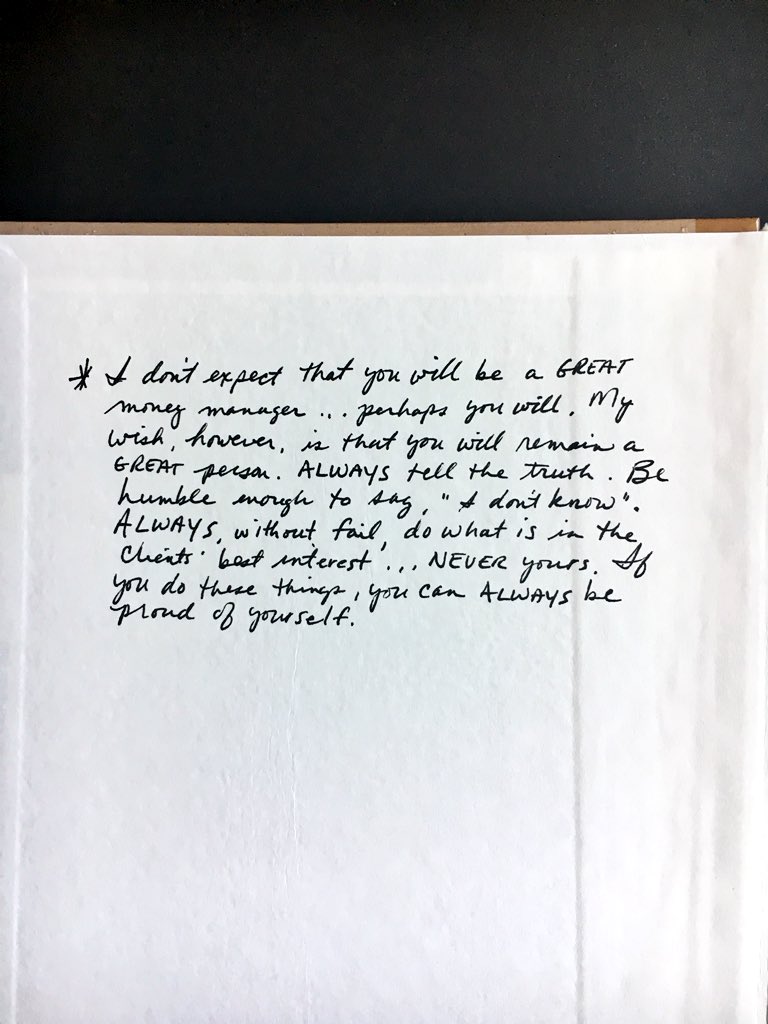 * I don't expect that you will be a GREAT
money manager ... perhaps you will. My
wish, however, is that you will remain a
GREAT person. ALWAYS tell the truth. Be
humble enough to say, "I don't know".
ALWAYS, without fail, do what is in the
clients' best interest ... NEVER yours. If
you do these things, you can ALWAYS be
proud of yourself.